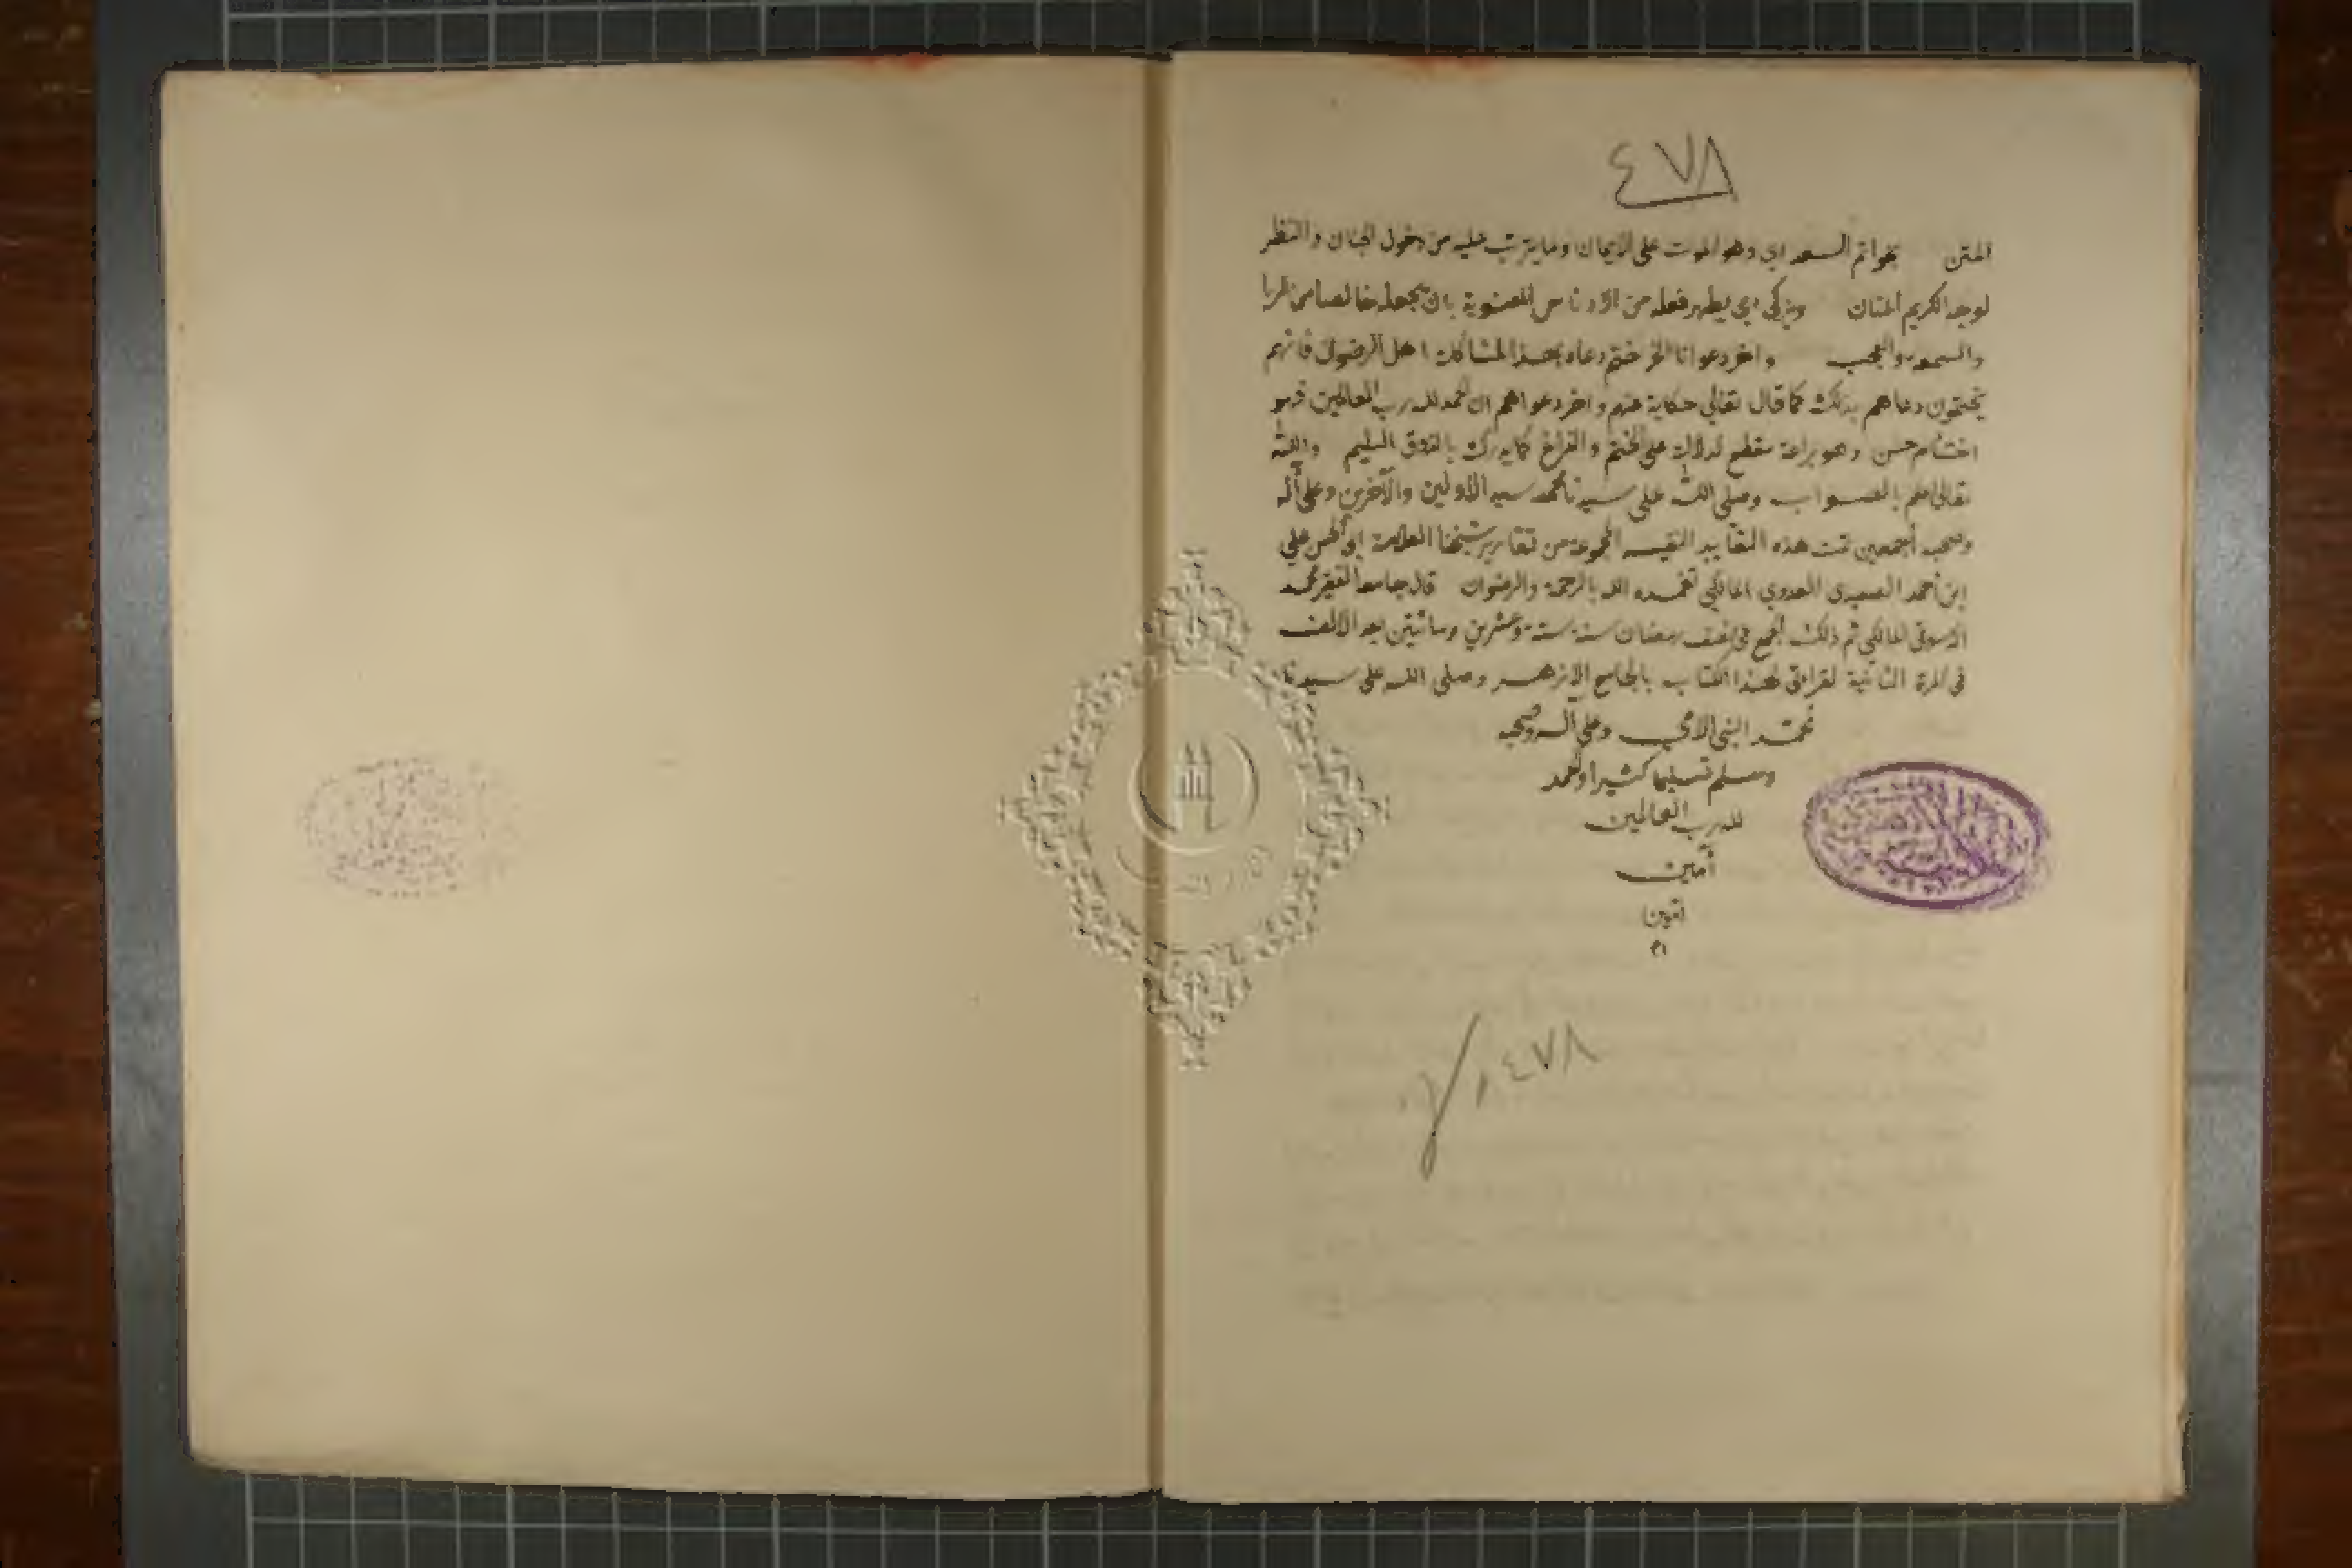 ٤٧٨
المتن بخواتم السعد اي وهو الموت على الايمان وما يترتب عليه من دخول الجنان والنظر
لوجه الكريم المنان ويزكي اي يطهر فعله من الادناس المعنوية بان يجعله خالصا من الريا
والسمعة والعجب واخر دعوانا الخ ختم دعاه بهذا لمشاكلة اهل الرضوان فانهم
يختمون دعاهم بذلك كما قال تعالى حكاية عنهم واخر دعواهم ان الحمد لله رب العالمين فهو
اختتام حسن وهو براعة مقطع لدلالته على الختم والفراغ كما يدرك بالذوق السليم والله
تعالى اعلم بالصواب وصلى الله على سيدنا محمد سيد الاولين والآخرين وعلى آله
وصحبه أجمعين تمت هذه التقاييد النفيسه المجموعة من تقارير شيخنا العلامة ابي الحسن علي
ابن أحمد الصعيدى العدوي المالكي تغمده الله بالرحمة والرضوان قال جامعه الفقير محمد
الدسوقي المالكي تم ذلك الجمع في نصف رمضان سنة ستة وعشرين ومائتين بعد الالف
فى المرة الثانية لقراءتى لهذا الكتاب بالجامع الازهر وصلى الله على سيدنا
محمد النبي الامي وعلى آله وصحبه
وسلم تسليما كثيرا والحمد
لله رب العالمين
آمين
٤٧٨